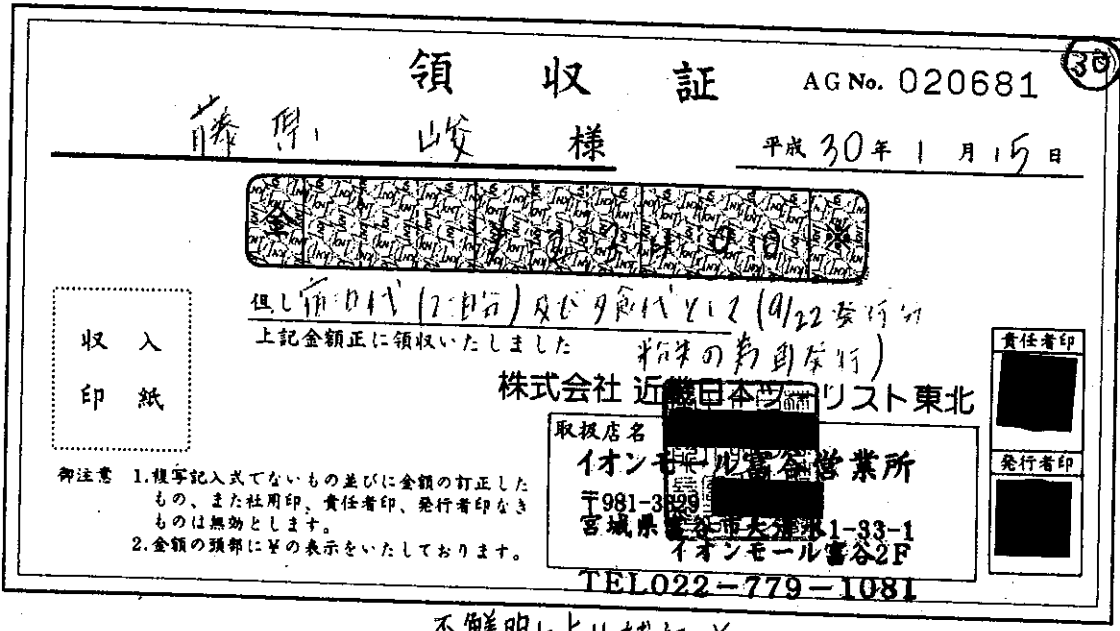 30
領 収 証 AG No. 020681
藤原 峻 様 平成 30 年 1 月 15 日
金
但し宿泊代(2泊分)及び夕食代として(9/22発行分
紛失の為再発行)
上記金額正に領収いたしました
株式会社 近畿日本ツーリスト東北
収 入
印 紙
責任者印
取扱店名
イオンモール富谷営業所
〒981-3329
宮城県富谷市大清水1-33-1
イオンモール富谷2F
TEL022-779-1081
発行者印
御注意 1.複写記入式てないもの並びに金額の訂正した
もの、また社用印、責任者印、発行者印なき
ものは無効とします。
2.金額の頭部に¥の表示をいたしております。